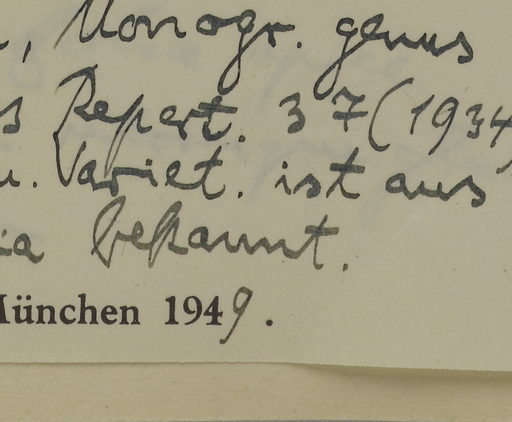 , Monogr. genus
s Repert. 37 (1934)
u. Variet. ist aus
ia bekannt.
München 1949.